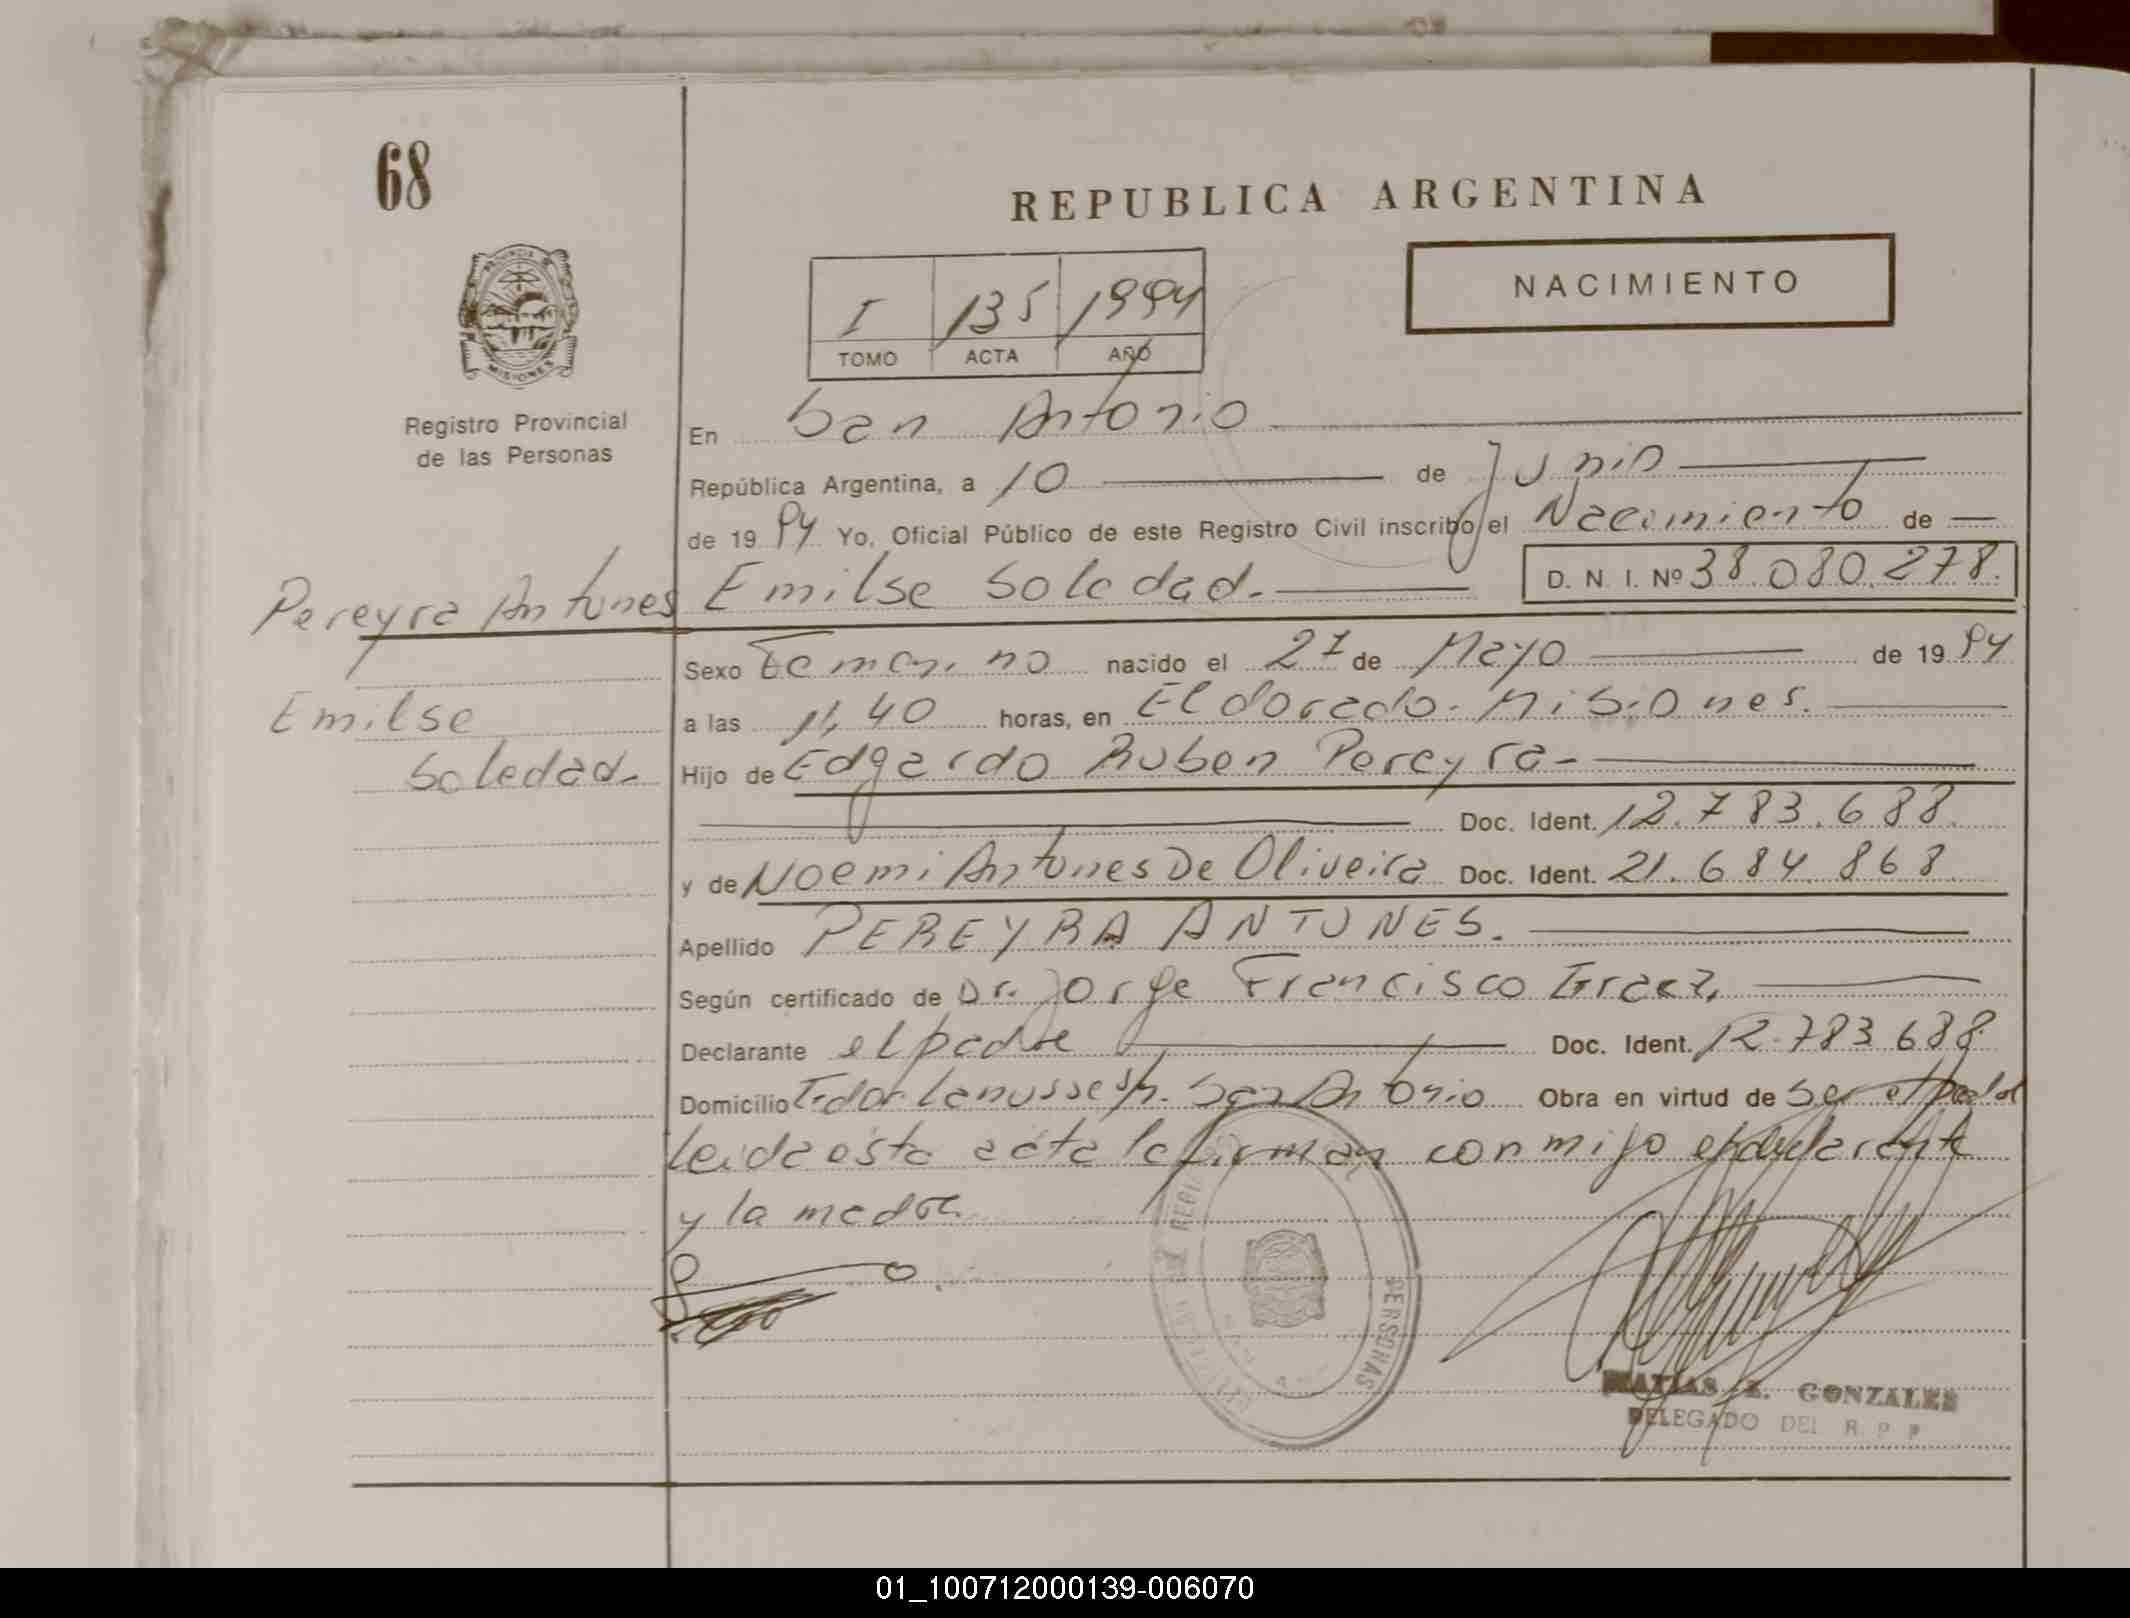 68
REPUBLICA ARGENTINA
NACIMIENTO
I 135 1994
TOMO ACTA AÑO
PROVINCIA DE
MISIONES
Registro Provincial
de las Personas
En San Antonio
República Argentina, a 10 de Junio
de 1994 Yo, Oficial Público de este Registro Civil inscribo el Nacimiento de
Pereyra Antunes Emilse Soledad. D. N. I. Nº 38.080.278.
Sexo Femenino nacido el 27 de Mayo de 1994
Emilse
Soledad.
a las 11,40 horas, en Eldorado. Misiones.
Hijo de Edgardo Ruben Pereyra
Doc. Ident. 12.783.688.
y de Noemi Antunes De Oliveira Doc. Ident. 21.684.868
Apellido PEREYRA ANTUNES.
Según certificado de Dr. Jorge Francisco
Declarante el padre Doc. Ident. 12.783.688
Domicilio Tdor Lanusse s/n. San Antonio Obra en virtud de ser el padre
Leida esta acta la firman conmigo el declarante
y la madre
PERSONAS
MATIAS GONZALES
DELEGADO DEL R P P
01_100712000139-006070